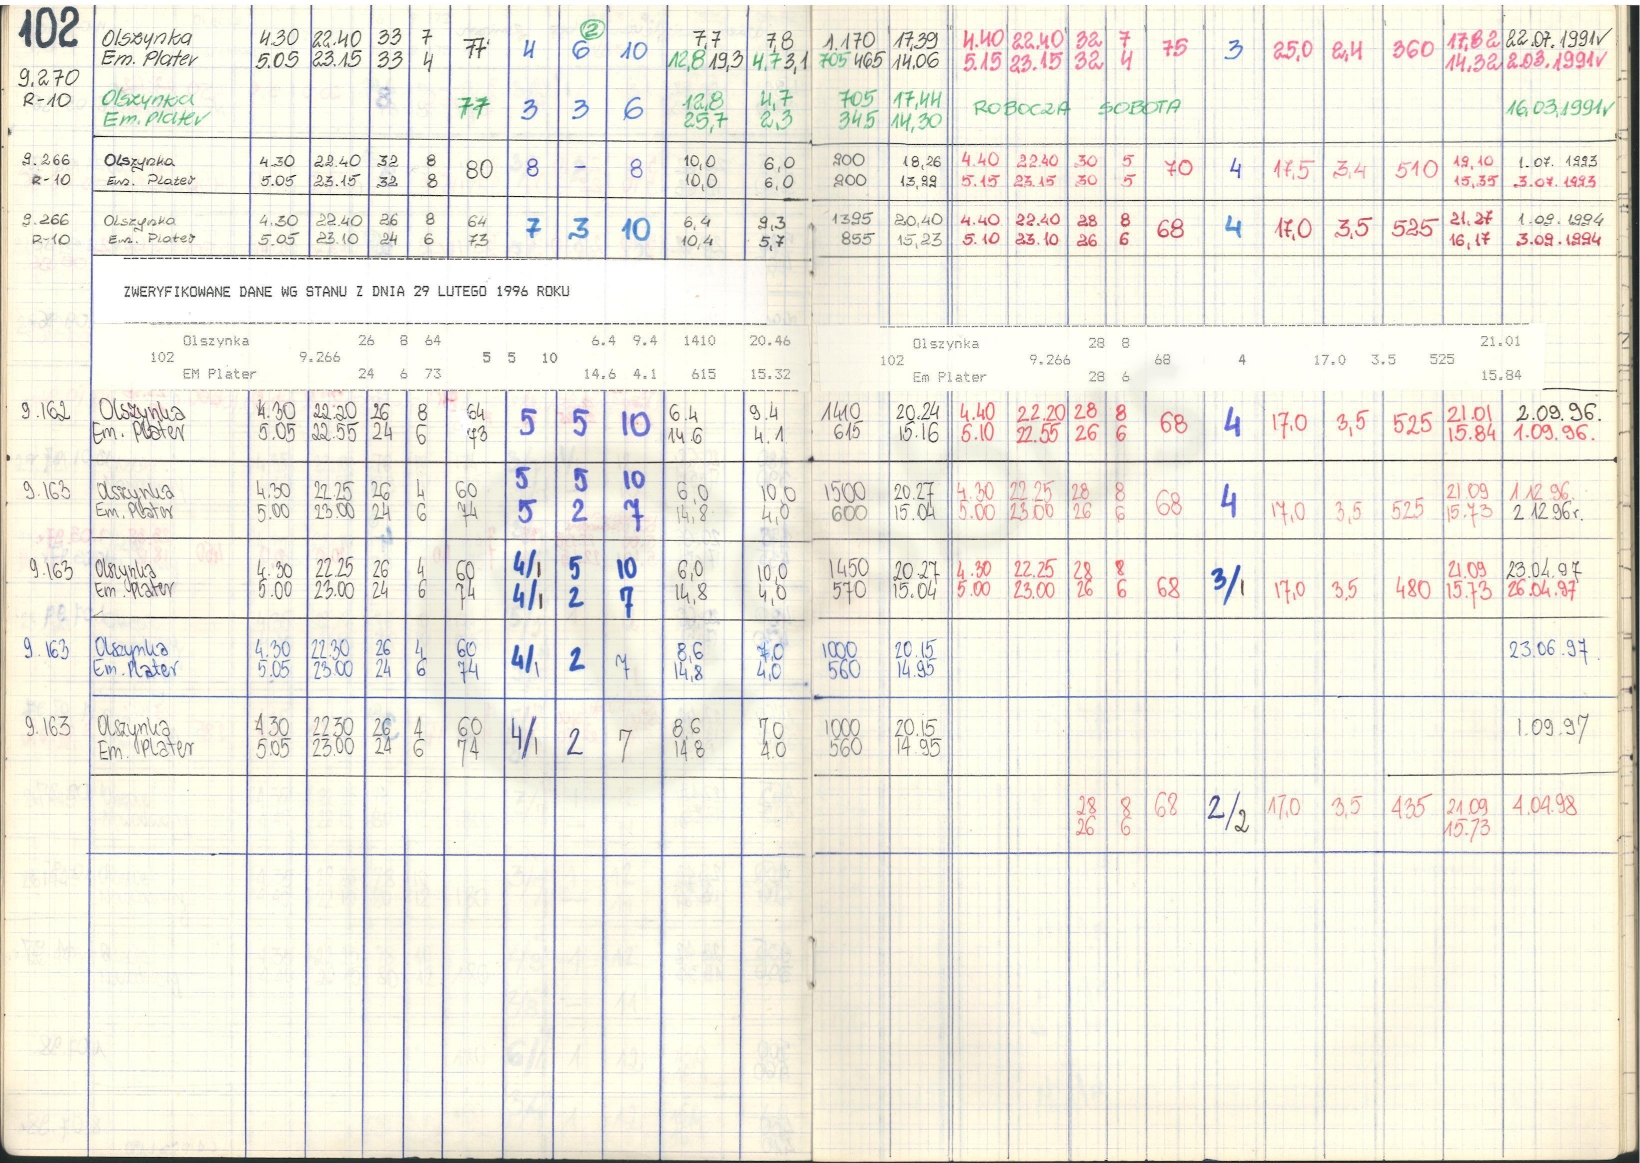 102 Olszynka 4.30 22.40 33 7 77 4 6 ② 10 7,7 7,8 1.170 17,39 4.40 22.40 32 7 75 3 25,0 2,4 360 17,82 22.07.1991r
Em. Plater 5.05 23.15 33 4 12,8 19,3 4,7 3,1 705 465 14,06 5.15 23.15 32 4 14,32 2.03.1991r
9.270
R-10 Olszynka 77 3 3 6 12,8 4,7 705 17,44 ROBOCZA SOBOTA 16.03.1991r
Em. Plater 25,7 2,3 345 14,30
9.266 Olszynka 4.30 22.40 32 8 80 8 - 8 10,0 6,0 900 18,26 4.40 22.40 30 5 70 4 17,5 3,4 510 19,10 1.07.1993
R-10 Em. Plater 5.05 23.15 32 8 10,0 6,0 900 13,99 5.15 23.15 30 5 15,35 3.07.1993
9.266 Olszynka 4.30 22.40 26 8 64 7 3 10 6,4 9,3 1395 20,40 4.40 22.40 28 8 68 4 17,0 3,5 525 21,27 1.09.1994
R-10 Em. Plater 5.05 23.10 24 6 73 10,4 5,7 855 15,23 5.10 23.10 26 6 16,17 3.09.1994
ZWERYFIKOWANE DANE WG STANU Z DNIA 29 LUTEGO 1996 ROKU
Olszynka 26 8 64 6.4 9.4 1410 20.46 Olszynka 28 8 21.01
102 9.266 5 5 10 102 9.266 68 4 17.0 3.5 525
EM Plater 24 6 73 14.6 4.1 615 15.32 Em Plater 28 6 15.84
9.162 Olszynka 4.30 22.20 26 8 64 5 5 10 6.4 9.4 1410 20.24 4.40 22.20 28 8 68 4 17,0 3,5 525 21.01 2.09.96.
Em. Plater 5.05 22.55 24 6 73 14.6 4.1 615 15.16 5.10 22.55 26 6 15.84 1.09.96.
9.163 Olszynka 4.30 22.25 26 4 60 5 5 10 6,0 10,0 1500 20.27 4.30 22.25 28 8 68 4 17,0 3,5 525 21.09 1 12 96.
Em. Plater 5.00 23.00 24 6 74 5 2 7 14,8 4,0 600 15.04 5.00 23.00 26 6 15.73 2 12 96r.
9.163 Olszynka 4.30 22.25 26 4 60 4/1 5 10 6,0 10,0 1450 20.27 4.30 22.25 28 8 68 3/1 17,0 3,5 480 21.09 23.04.97
Em. Plater 5.00 23.00 24 6 74 4/1 2 7 14,8 4,0 570 15.04 5.00 23.00 26 6 15.73 26.04.97
9.163 Olszynka 4.30 22.30 26 4 60 4/1 2 7 8,6 7,0 1000 20.15 23.06.97.
Em. Plater 5.05 23.00 24 6 74 14,8 4,0 560 14.95
9.163 Olszynka 4.30 22 30 26 4 60 4/1 2 7 8,6 7.0 1000 20.15 1.09.97
Em. Plater 5.05 23.00 24 6 74 14,8 4.0 560 14.95
28 8 68 2/2 17,0 3,5 435 21.09 4.04.98
26 6 15.73